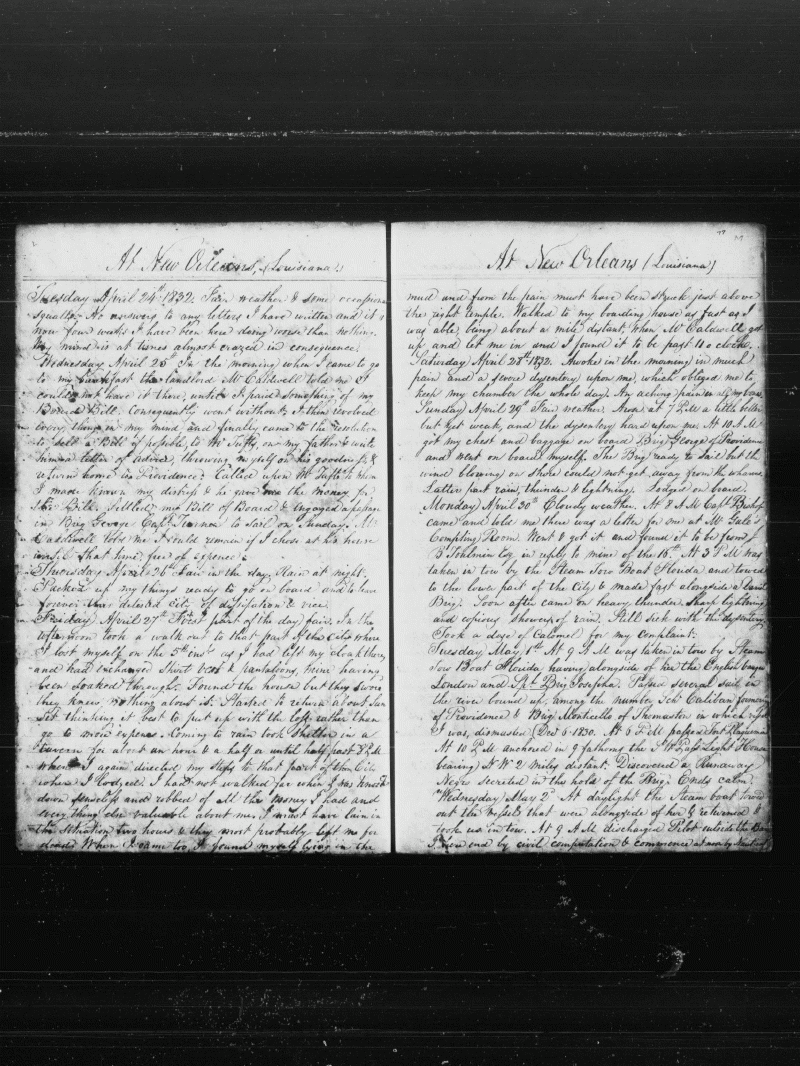 At New Orleans, (Louisiana)
Tuesday April 24th 1832. Fair weather & some occasional
squalls. No answers to any letters I have written and it is
now four weeks I have been here doing worse than nothing.
My mind is at times almost crazed in consequence.
Wednesday April 25th In the morning when I came to go
to my breakfast the landlord Mr Caldwell told me I
could not have it there, until I paid something of my
Board Bill. Consequently went without, I then revolved
every thing in my mind and finally came to the resolution
to sell a Bill if possible to Mr Tufts, on my father & write
him a letter of advice, throwing myself on his goodness &
return home to Providence. Called upon Mr Tufts to whom
I made known my distress & he gave me the money for
the Bill. Settled my Bill of Board & engaged a passage
in Brig George Capt to Sail on Sunday. Mr
Caldwell told me I could remain if I chose at his house
until that time free of expence.
Thursday April 26th Fair in the day, Rain at night.
Packed up my things ready to go on board and to leave
forever this detested City of dissipation & vice.
Friday April 27th First part of the day fair. In the
afternoon took a walk out to that part of the City where
I lost myself on the 5th inst as I had left my cloak there,
and had exchanged Shirt vest & pantaloons, mine having
been soaked through. Found the house but they swore
they knew nothing about it. Started to return about Sun
Set thinking it best to put up with the loss rather than
go to more expense. Coming to rain took shelter in a
tavern for about an hour & a half or until half past 8 PM
when I again directed my steps to that part of the City
where I lodged. I had not walked far when I was knocked
down senseless and robbed of all the money I had and
every thing else valuable about me, I must have lain in
this situation two hours & they most probably left me for
dead. When I came too, I found myself lying in the
77
At New Orleans (Louisiana)
mud and from the pain must have been struck just above
the right temple. Walked to my boarding house as fast as I
was able, being about a mile distant, when Mr Caldwell got
up and let me in and I found it to be past 11 o clock.
Saturday April 28th 1832. Awoke in the morning in much
pain and a severe dysentery upon me, which obliged me to
keep my chamber the whole day. An aching pain in all my bones.
Sunday April 29th Fair weather. Arose at 7 AM a little better
but yet weak, and the dysentery hard upon me. At 10 AM
got my chest and baggage on board Brig George of Providence
and went on board myself. The Brig ready to sail but the
wind blowing on shore could not get away from the wharf.
Latter part rain, thunder & lightning. Lodged on board.
Monday April 30th Cloudy weather. At 8 AM Capt Bishop
came and told me there was a letter for me at Mr Gale's
Compting Room. Went & got it and found it to be from
B Tohlman Esq in reply to mine of the 16th. At 3 PM was
taken in tow by the Steam Tow Boat Florida and towed
to the lower part of the City & made fast alongside a
Brig. Soon after came on heavy thunder sharp lightning
and copious showers of rain. Still sick with the dysentery
Took a dose of Calomel for my complaint.
Tuesday May 1st At 9 AM was taken in tow by Steam
Tow Boat Florida, having alongside of her the English barque
London and Sph Brig Josefina. Passed several sail in
the river bound up, among the number Sch Caliban
of Providence & Brig Monticello of Thomaston in which vessel
I was dismasted (Dec 6 1830. At 6 PM passed Fort Plaquemine
At 10 PM anchored in 9 fathoms the S W Pass Light House
bearing N W 2 miles distant. Discovered a Runaway
Negro secreted in the hold of the Brig. Ends calm.
Wednesday May 2d At daylight the Steam boat towed
out the Vessels that were alongside of her & returned &
took us in tow. At 9 AM discharged Pilot outside the Bar
I now end by civil computation & commence at noon by Nautical